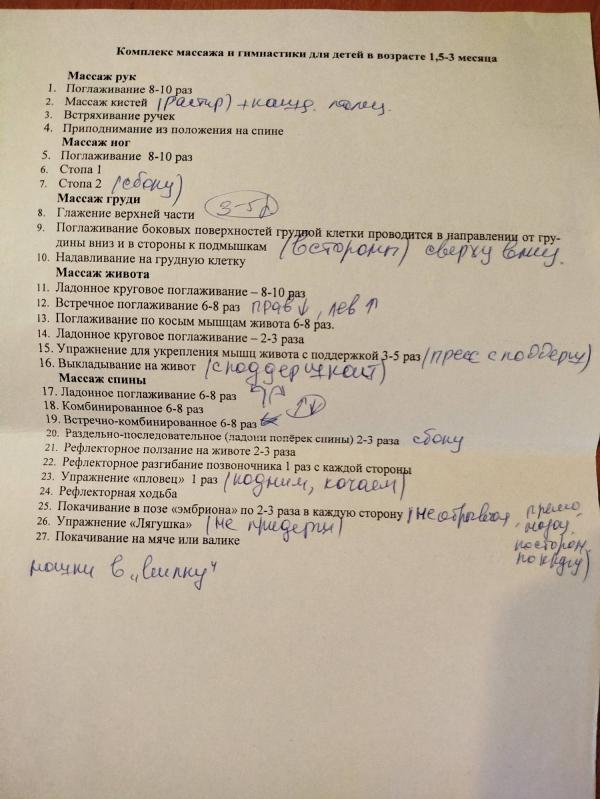 Комплекс массажа и гимнастики для детей в возрасте 1,5-3 месяца
Массаж рук
1. Поглаживание 8-10 раз
2. Массаж кистей (растир) + кажд. палец.
3. Встряхивание ручек
4. Приподнимание из положения на спине
Массаж ног
5. Поглаживание 8-10 раз
6. Стопа 1
7. Стопа 2 (сбоку)
Массаж груди
8. Глажение верхней части 3-5
9. Поглаживание боковых поверхностей грудной клетки проводится в направлении от гру-
дины вниз и в стороны к подмышкам (в стороны) сверху вниз.
10. Надавливание на грудную клетку
Массаж живота
11. Ладонное круговое поглаживание – 8-10 раз
12. Встречное поглаживание 6-8 раз прав ↓, лев ↑
13. Поглаживание по косым мышцам живота 6-8 раз.
14. Ладонное круговое поглаживание – 2-3 раза
15. Упражнение для укрепления мышц живота с поддержкой 3-5 раз (пресс с поддерж)
16. Выкладывание на живот (с поддержкой)
Массаж спины
17. Ладонное поглаживание 6-8 раз
18. Комбинированное 6-8 раз ↑↓
19. Встречно-комбинированное 6-8 раз
20. Раздельно-последовательное (ладони поперёк спины) 2-3 раза сбоку
21. Рефлекторное ползание на животе 2-3 раза
22. Рефлекторное разгибание позвоночника 1 раз с каждой стороны
23. Упражнение «пловец» 1 раз (подним, качаем)
24. Рефлекторная ходьба
25. Покачивание в позе «эмбриона» по 2-3 раза в каждую сторону прямо,
26. Упражнение «Лягушка» (не придерж)
27. Покачивание на мяче или валике по сторон,
по кругу)
ножки в „вилку“